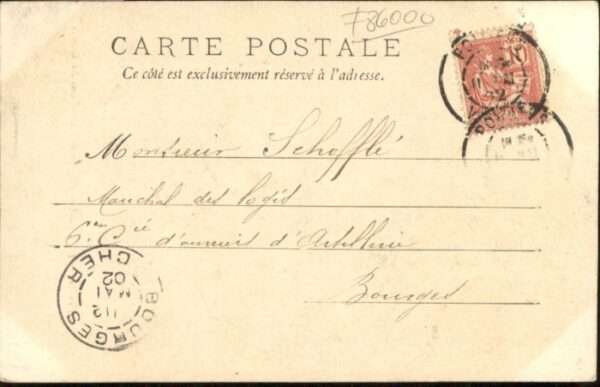 F86000
CARTE POSTALE
Ce côté est exclusivement réservé à l'adresse.
Monsieur Schofflé
Marechal des logis
6e Cie d'ouvriers d'Artillerie
Bourges
BOURGES
CHER
MAI
02